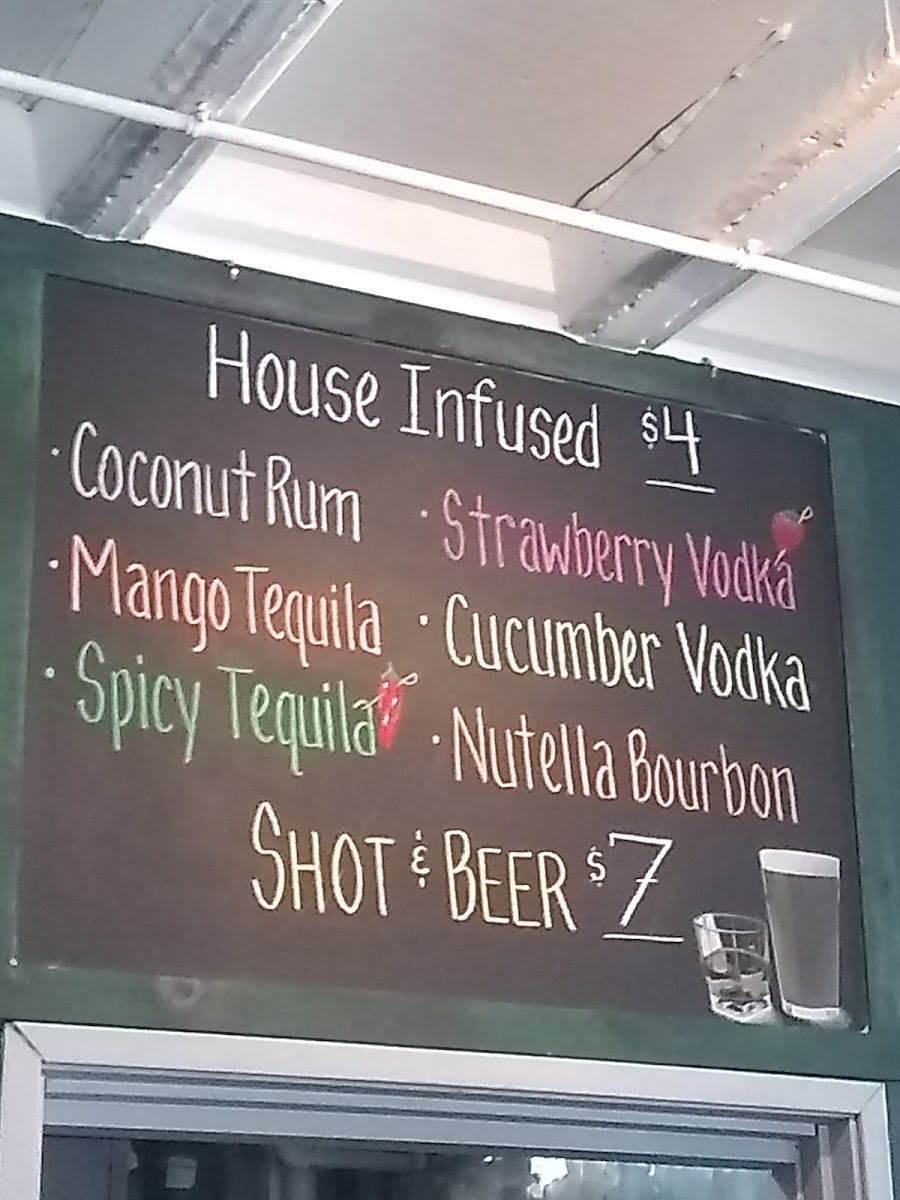 House Infused $4
· Coconut Rum
· Mango Tequila
· Spicy Tequila
· Strawberry Vodka
· Cucumber Vodka
· Nutella Bourbon
SHOT & BEER $7